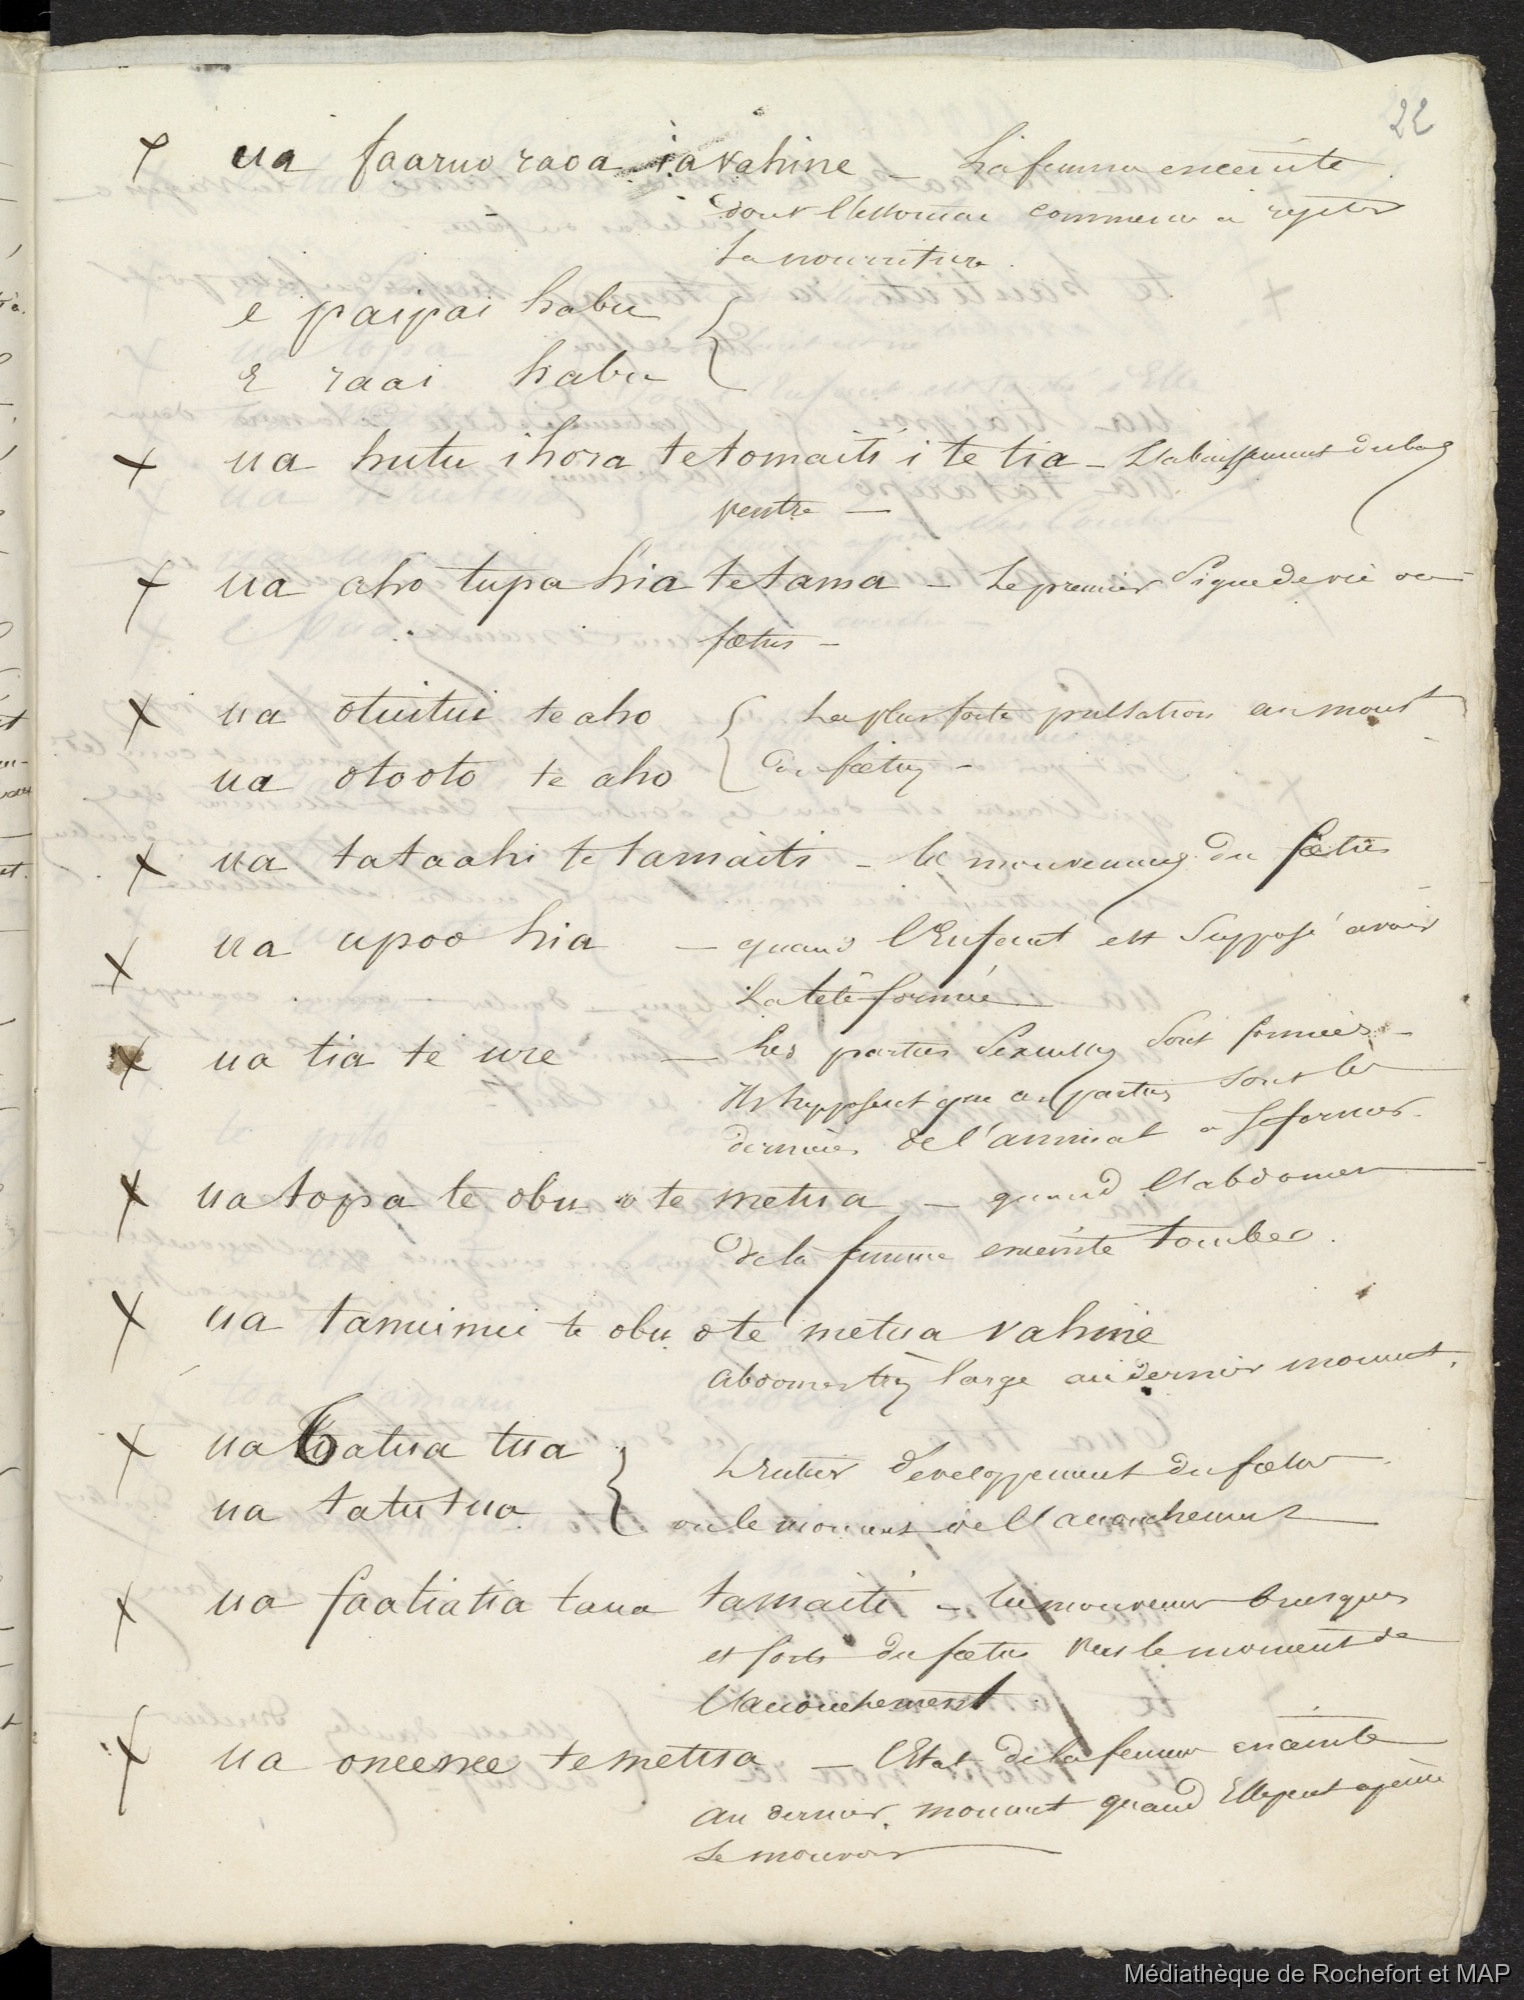 22
+ ua faaruo raoa ia vahine – La femme enceinte
dont l'Estomac commence à rejeter
la nourriture.
e paipai habu {
E raai habu
+ ua hutu i hora te tamaiti i te tia – L'abaissement du bas
ventre –
+ ua aho tupa hia te tama – Le premier signe de vie ou
fœtus –
+ ua otuitui te aho { La plus forte pulsation au mouvt
ua otooto te aho du fœtus –
+ ua tataahi te tamaiti – les mouvements du fœtus
+ ua upoo hia – quand l'Enfant est supposé avoir
La tête formée
+ ua tia te ure – Les parties sexuelles sont formées –
Ils supposent que ces parties sont les
dernières de l'animal à se former.
+ ua topa te obu o te metua – quand l'abdomen
de la femme enceinte tombe.
+ ua tamuimui te obu o te metua vahine
abdomen très large au dernier moment.
+ ua Tatua tua } L'Entier développement du fœtus
ua tatutua ou le moment de l'accouchement
+ ua faatiatia taua tamaiti – les mouvemens brusques
et forts du fœtus vers le moment de
l'accouchement
+ ua oneenee te metua – l'Etat de la femme enceinte
au dernier moment quand Elle peut à peine
se mouvoir
Médiathèque de Rochefort et MAP